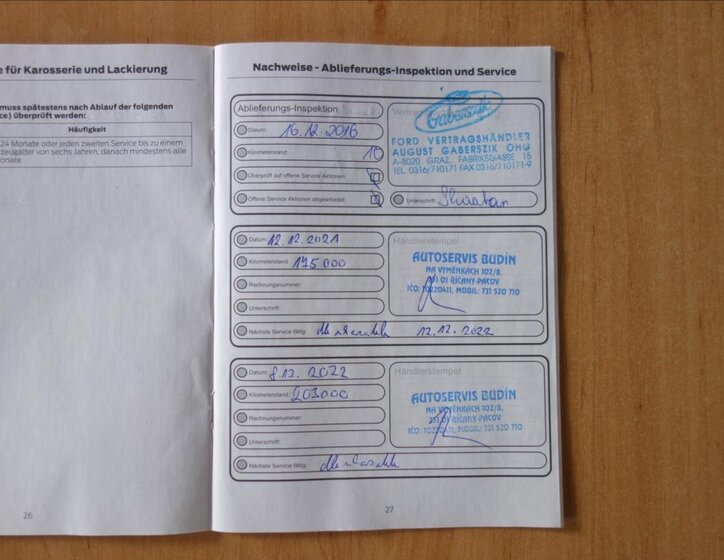 e für Karosserie und Lackierung
muss spätestens nach Ablauf der folgenden
ce) überprüft werden:
Häufigkeit
24 Monate oder jeden zweiten Service bis zu einem
zeugalter von sechs Jahren, danach mindestens alle
onate.
26
Nachweise - Ablieferungs-Inspektion und Service
Ablieferungs-Inspektion
Datum: 16.12.2016
Kilometerstand: 10
Überprüft auf offene Service Aktionen:
Offene Service Aktionen abgearbeitet:
Gaberszik
FORD VERTRAGSHÄNDLER
AUGUST GABERSZIK OHG
A-8020 GRAZ, FABRIKSGASSE 15
TEL. 0316/710171 FAX 0316/710171-9
Unterschrift:
Datum: 12.12.2021
Kilometerstand: 175 000
Rechnungsnummer:
Unterschrift:
Händlerstempel
AUTOSERVIS BUDÍN
NA VÝMĚNKÁCH 102/8,
251 01 ŘÍČANY-PACOV
IČO: 10220411, MOBIL: 731 520 710
Nächste Service fällig: 12.12.2022
Datum: 8.12.2022
Kilometerstand: 203000
Rechnungsnummer:
Unterschrift:
Händlerstempel
AUTOSERVIS BUDÍN
NA VÝMĚNKÁCH 102/8,
251 01 ŘÍČANY-PACOV
IČO: 10220411, MOBIL: 731 520 710
Nächste Service fällig:
27